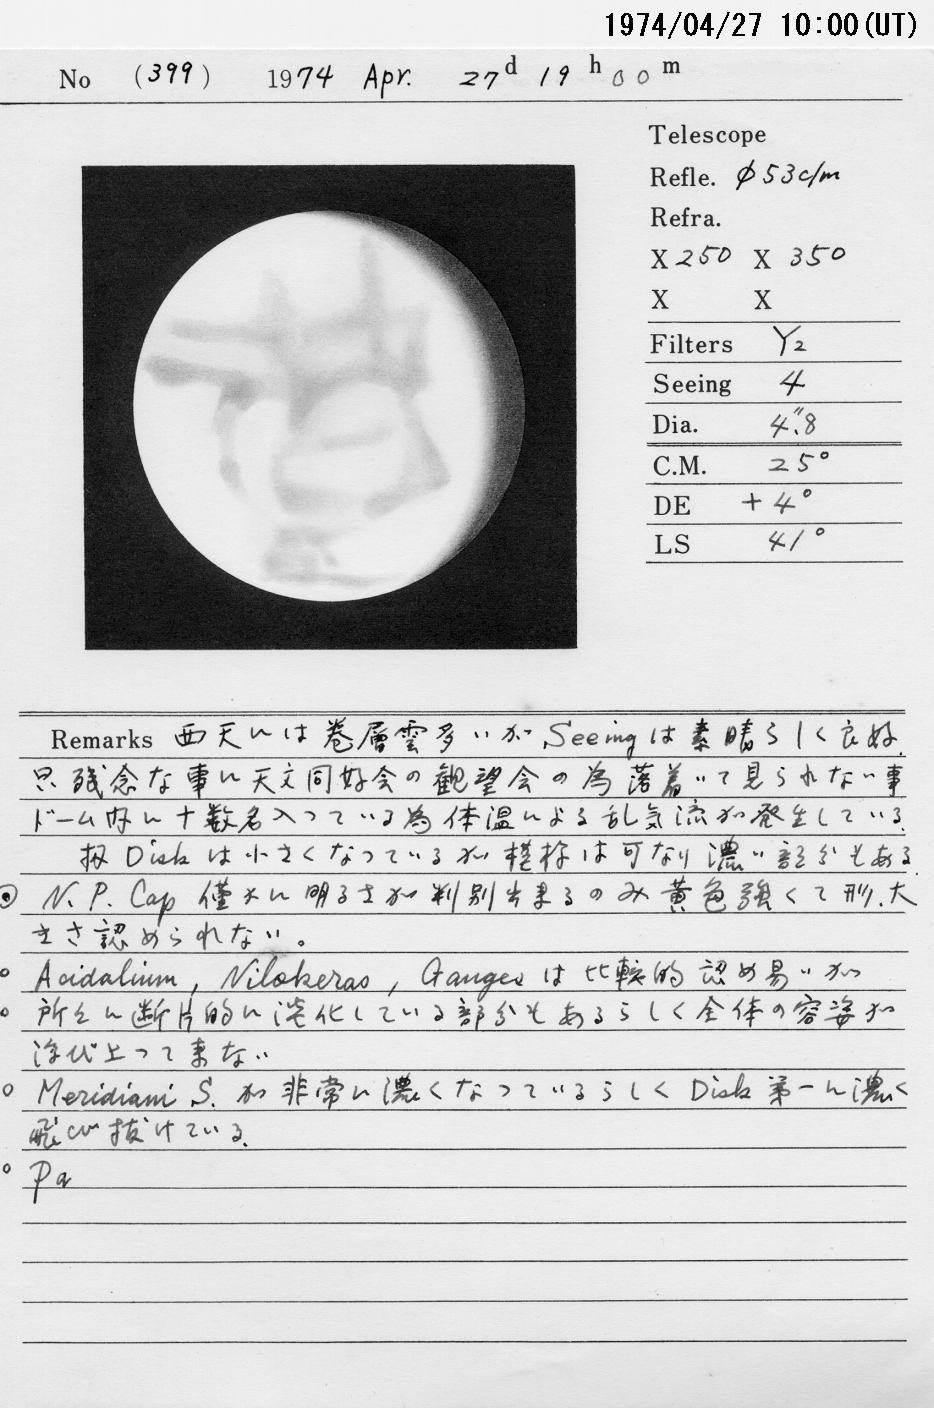 1974/04/27 10:00(UT)
No (399) 1974 Apr. 27d 19h 00m
Telescope
Refle. φ53c/m
Refra.
X 250 X 350
X X
Filters Y2
Seeing 4
Dia. 4."8
C.M. 25°
DE +4°
LS 41°
Remarks 西天には巻層雲多いが Seeingは素晴らしく良好.
只残念な事に天文同好会の観望会の為落着いて見られない事
ドーム内に十数名入っている為体温による乱気流が発生している.
扨 Diskは小さくなっているが模様は可なり濃い部分もある
◎ N. P. Cap 僅かに明るさが判別出来るのみ黄色強くて形.大
きさ認められない。
○ Acidalium, Nilokeras, Ganges は比較的認め易いが
○ 所々に断片的に淡化している部分もあるらしく全体の容姿が
浮び上って来ない
○ Meridiani S. が非常に濃くなっているらしく Disk 第一に濃く
飛び抜けている.
○ Pa